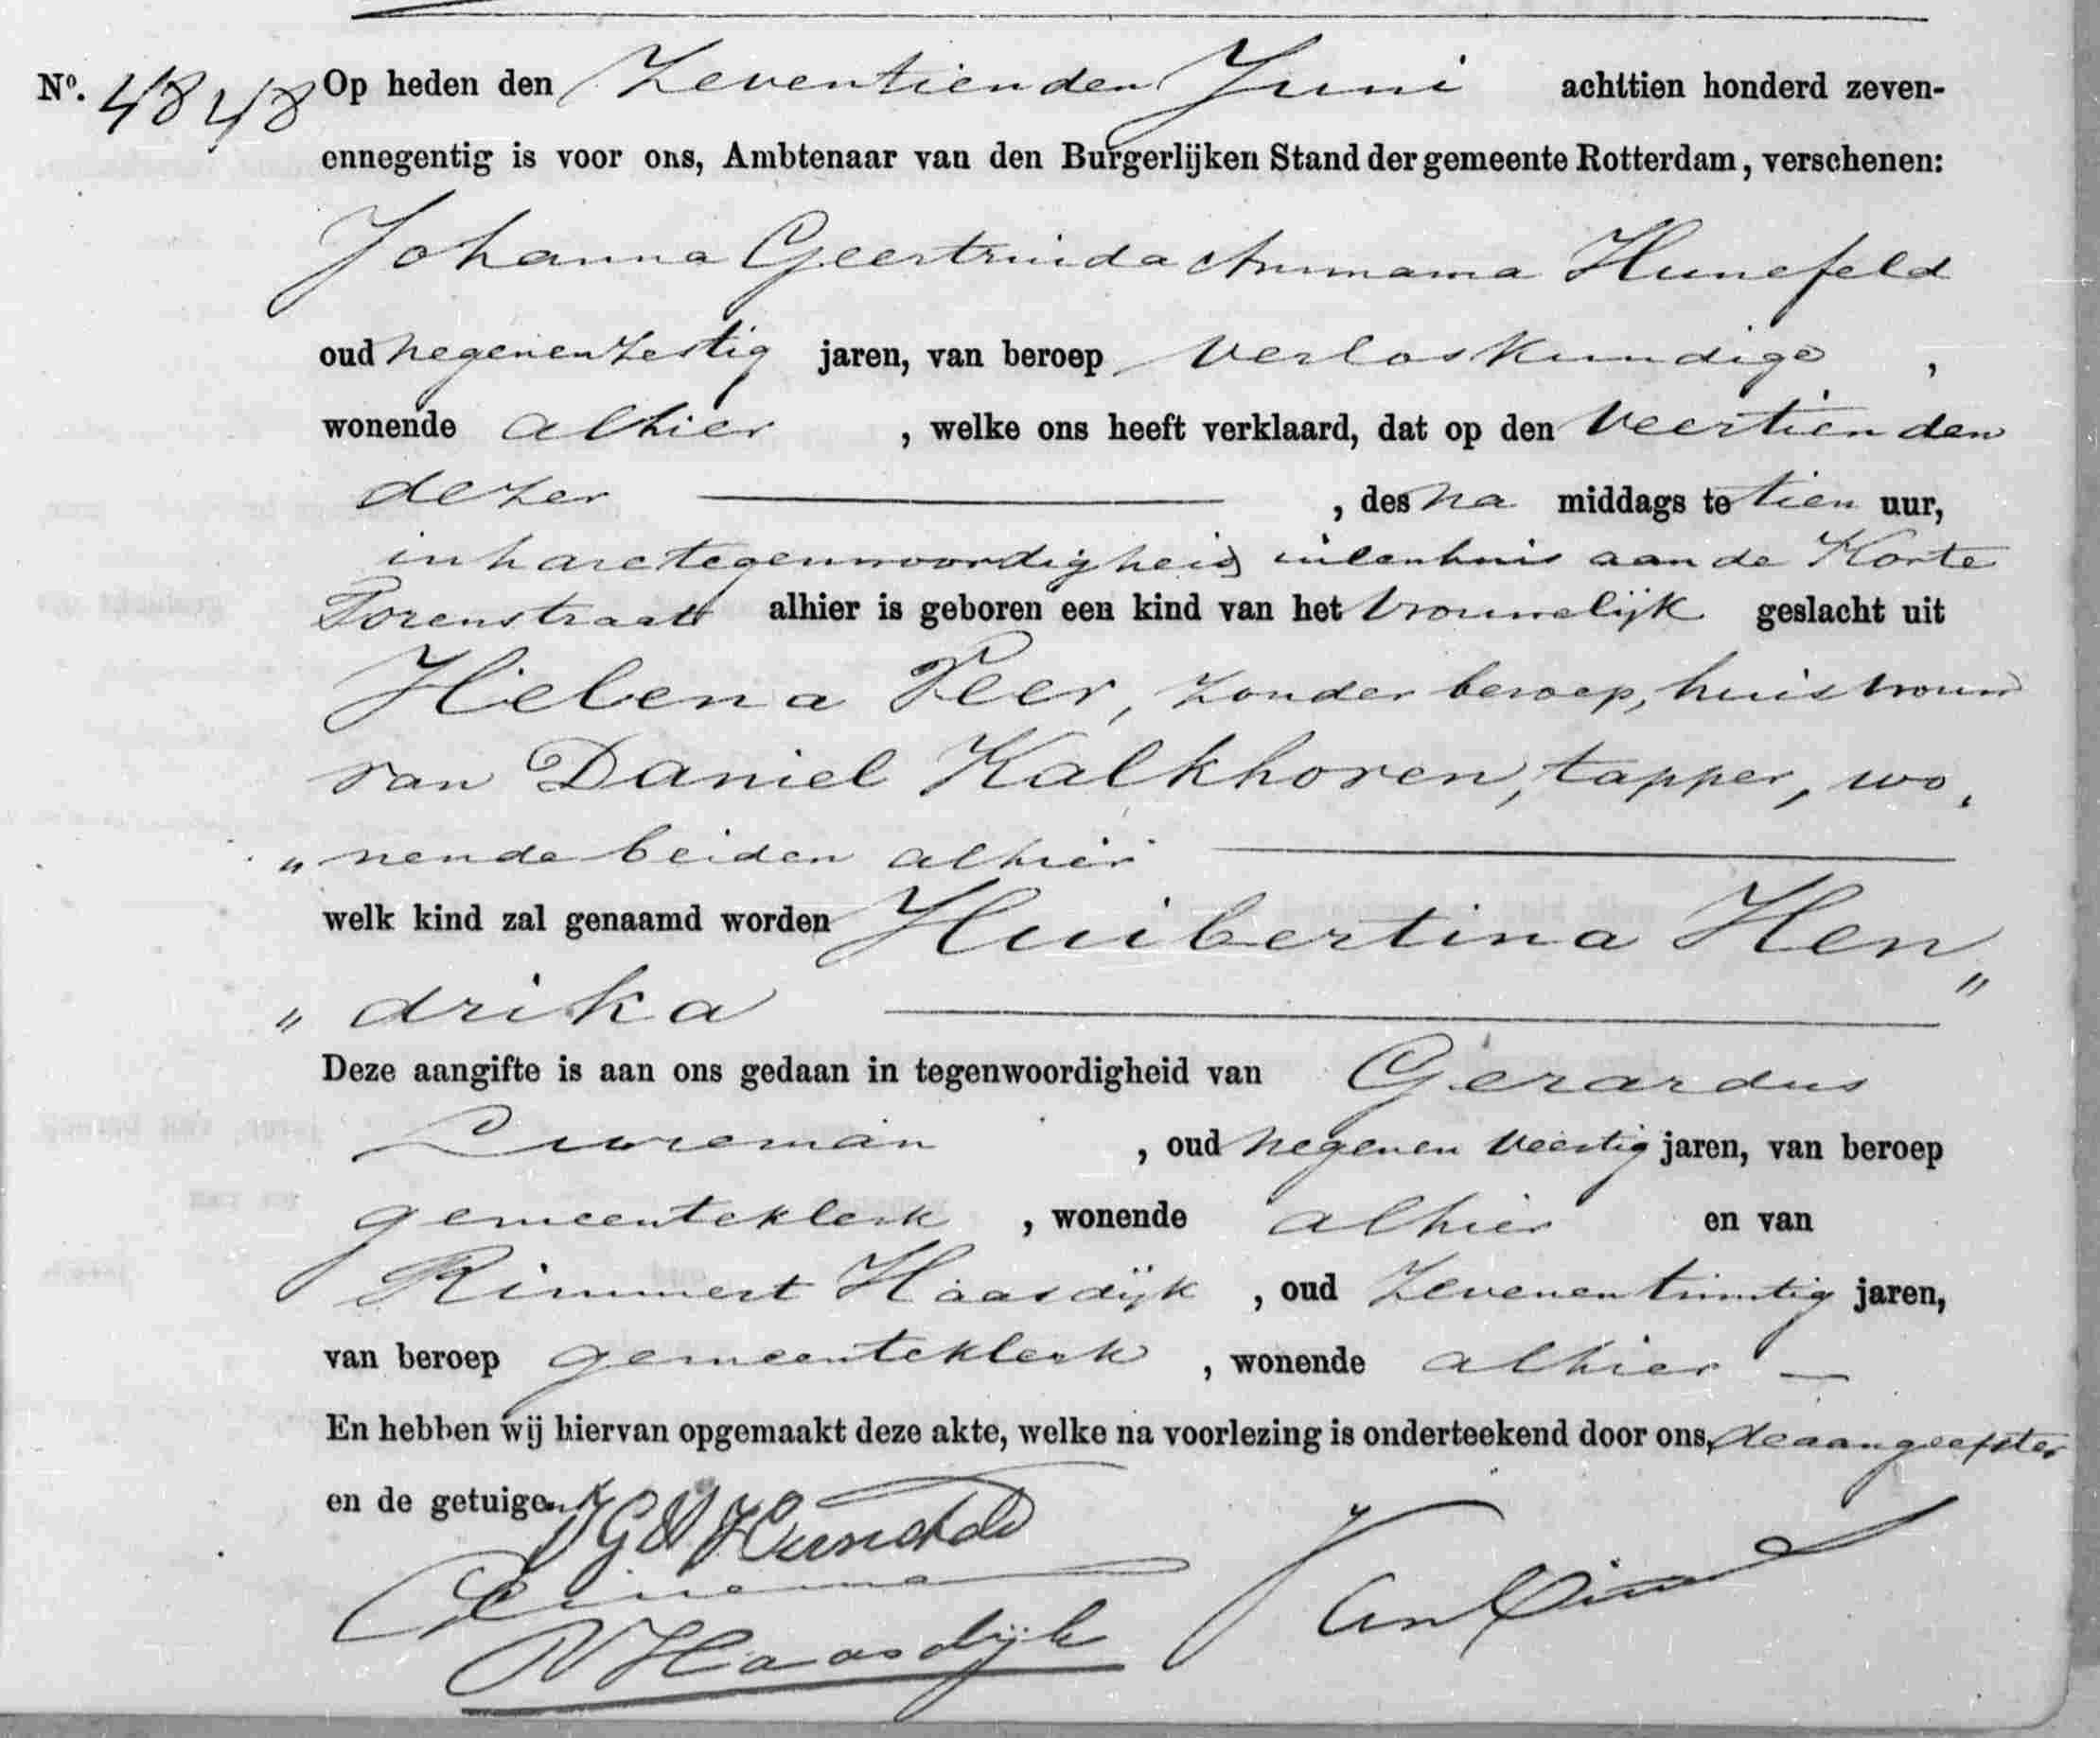 No. 4848 Op heden den Zeventienden Juni achttien honderd zeven-
ennegentig is voor ons, Ambtenaar van den Burgerlijken Stand der gemeente Rotterdam, verschenen:
Johanna Geertruida Ammama Hunefeld
oud negenenzestig jaren, van beroep Verloskundige ,
wonende alhier , welke ons heeft verklaard, dat op den Veertienden
dezer , des na middags te tien uur,
in hare tegenwoordigheid in een huis aan de Korte
Torenstraat alhier is geboren een kind van het vrouwelijk geslacht uit
Helena Peer, zonder beroep, huisvrouw
van Daniel Kalkhoven, tapper, wo„
„nende beiden alhier
welk kind zal genaamd worden Huibertina Hen„
„drika
Deze aangifte is aan ons gedaan in tegenwoordigheid van Gerardus
, oud negenen veertig jaren, van beroep
gemeenteklerk , wonende alhier en van
Rimmert Haasdijk , oud Zevenentwintig jaren,
van beroep gemeenteklerk , wonende alhier
En hebben wij hiervan opgemaakt deze akte, welke na voorlezing is onderteekend door ons, de aangeefster
en de getuigen.
Haasdijk